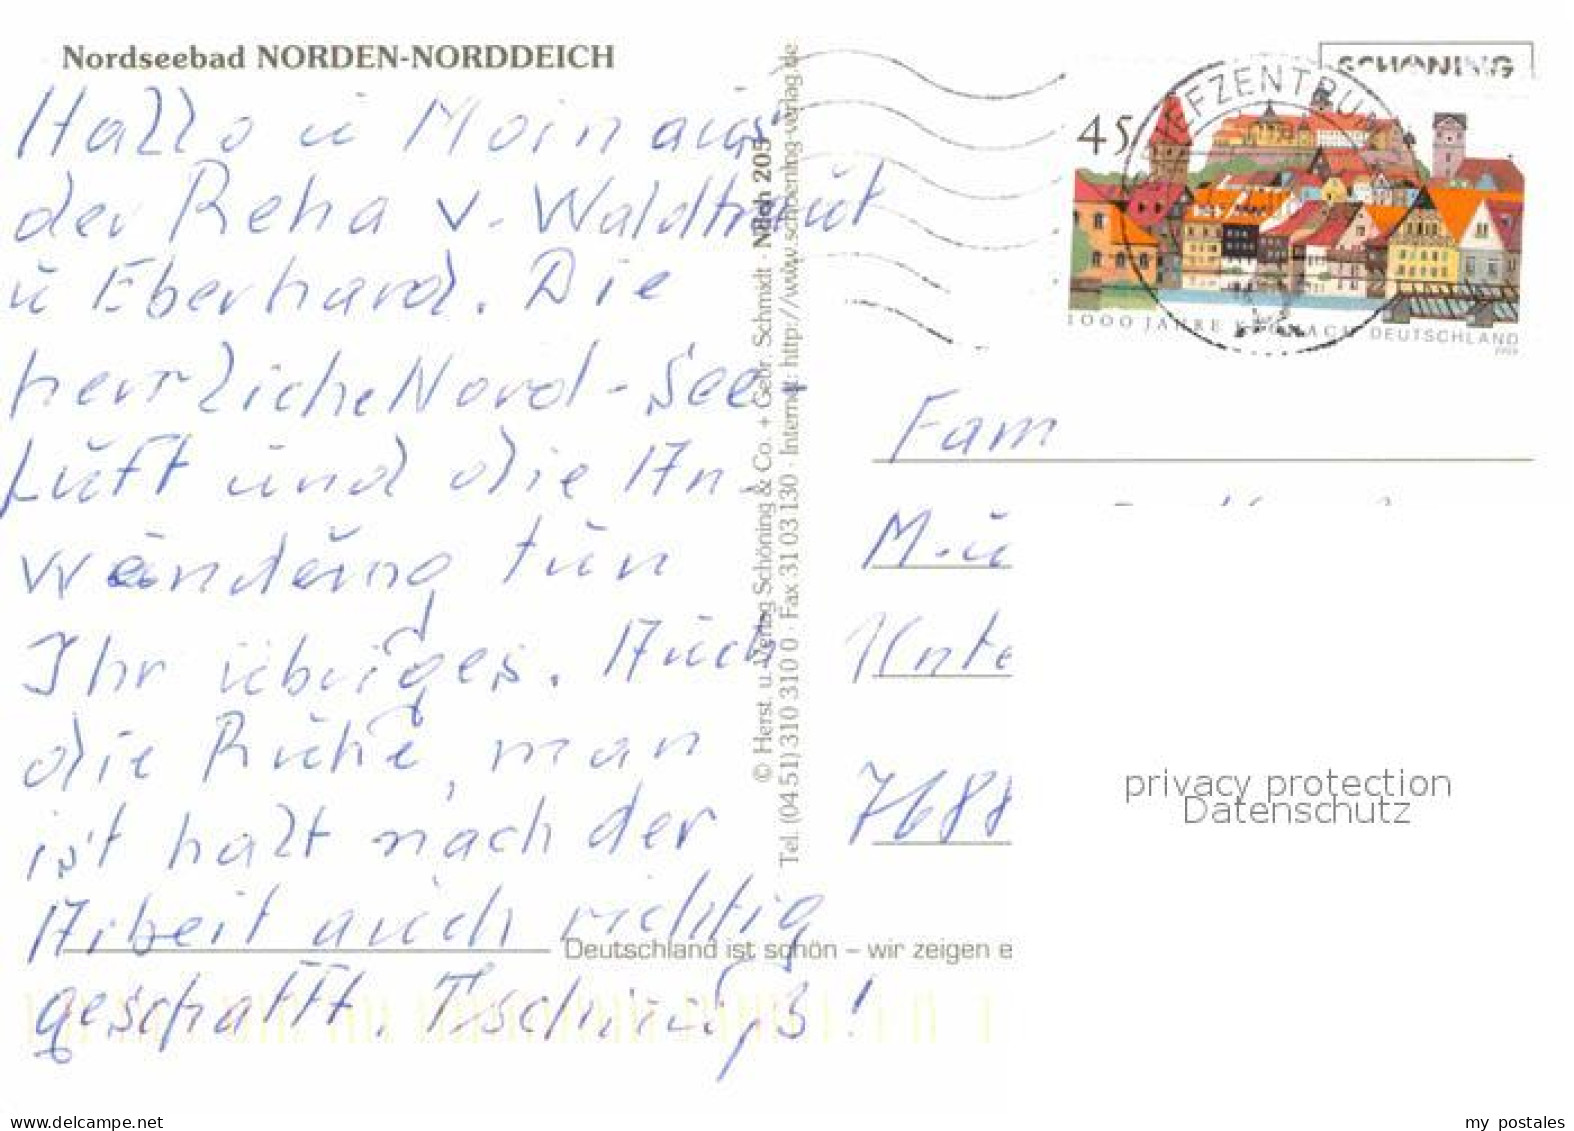 Nordseebad NORDEN-NORDDEICH
Hallo u Moin aus
der Reha v. Waldtraut
u Eberhard. Die
herrliche Nord-See-
Luft und die An-
wendung tun
Ihr übriges. Auch
die Ruhe, man
ist halt nach der
Arbeit auch richtig
geschafft. Tschüüß!
© Herst. u. Verlag Schöning & Co. + Gebr. Schmidt · Ndch 205
Tel. (04 51) 310 310 0 · Fax 31 03 130 · Internet: http://www.schoening-verlag.de
SCHÖNING
BRIEFZENTRUM
45
1000 JAHRE KRONACH DEUTSCHLAND
Fam
Unte
7688
privacy protection
Datenschutz
Deutschland ist schön – wir zeigen e
www.delcampe.net
my_postales